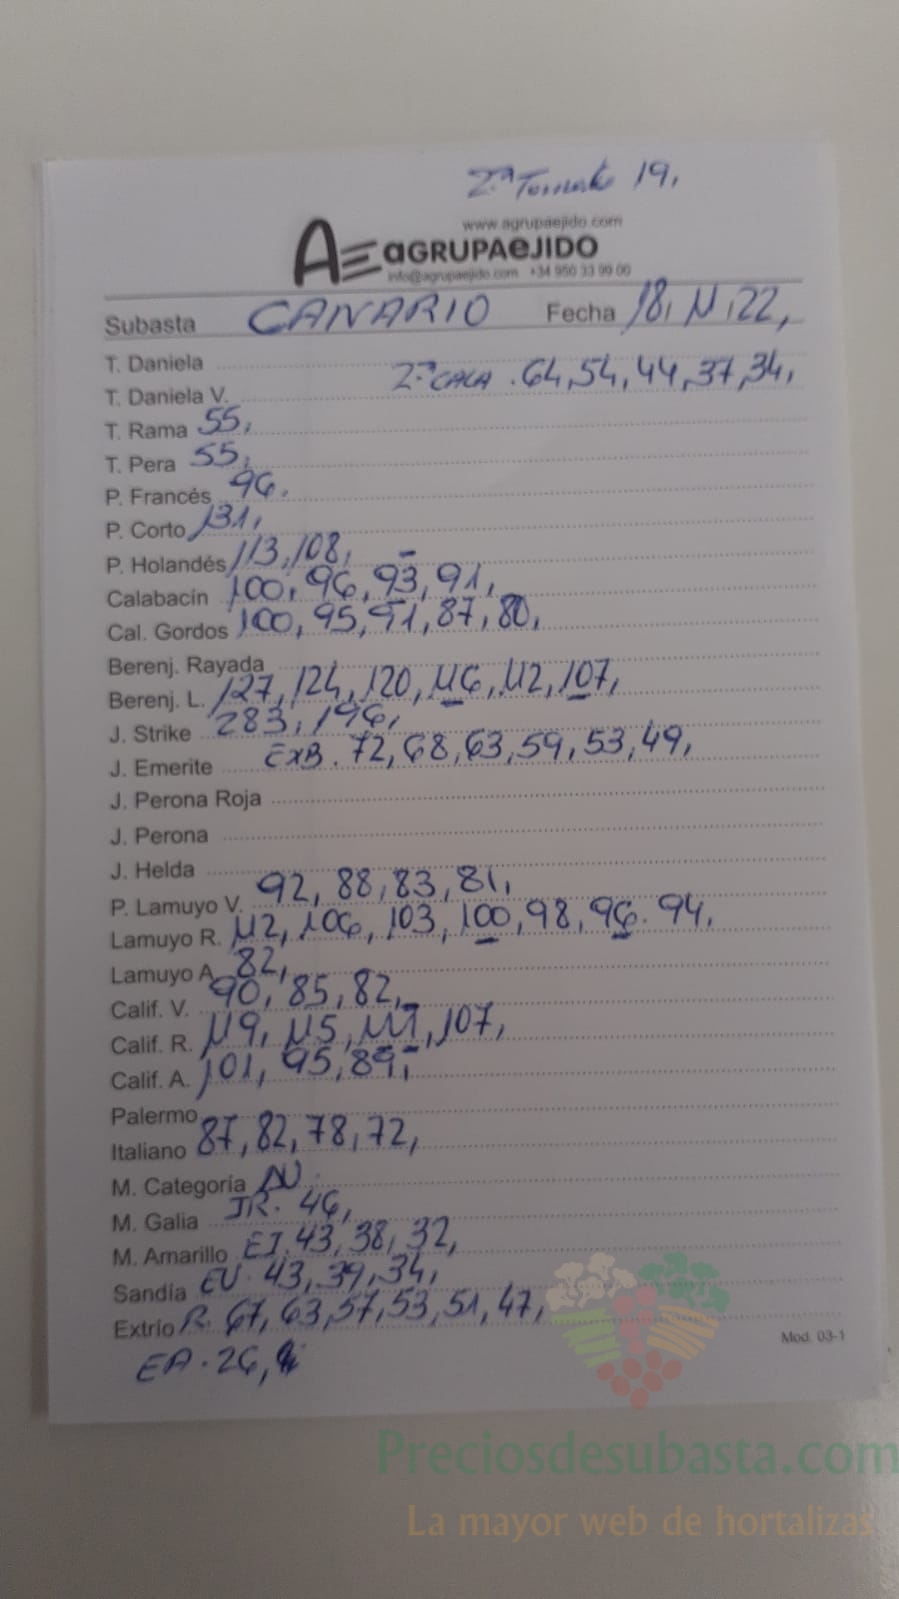 2ª Tomate 19,
www.agrupaejido.com
AE aGRUPAeJIDO
info@agrupaejido.com +34 950 33 99 00
Subasta CANARIO Fecha 18, 11, 22,
T. Daniela
2ª CALA . 64, 54, 44, 37, 34,
T. Daniela V.
T. Rama 55,
T. Pera 55,
P. Francés 96,
P. Corto 131,
P. Holandés 113, 108,
Calabacín 100, 96, 93, 91,
Cal. Gordos 100, 95, 91, 87, 80,
Berenj. Rayada
Berenj. L. 127, 124, 120, 116, 112, 107,
J. Strike 283, 196,
J. Emerite EXB. 72, 68, 63, 59, 53, 49,
J. Perona Roja
J. Perona
J. Helda
P. Lamuyo V. 92, 88, 83, 81,
Lamuyo R. 112, 106, 103, 100, 98, 96. 94,
Lamuyo A. 82,
Calif. V. 90, 85, 82,
Calif. R. 119, 115, 111, 107,
Calif. A. 101, 95, 89,
Palermo
Italiano 87, 82, 78, 72,
M. Categoría
M. Galia JR. 46,
M. Amarillo EI. 43, 38, 32,
Sandía EV. 43, 39, 34,
Extrío R. 67, 63, 57, 53, 51, 47,
Mod. 03-1
EA. 26,
Preciosdesubasta.com
La mayor web de hortalizas